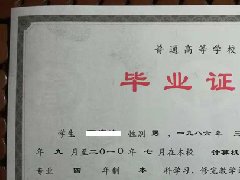 普通高等学校
毕业证
学生 性别 男 ，一九八六年 三
年 九 月至二〇一〇年 七 月在本校 计算机
专业 四 年制 本 科学习，修完教学